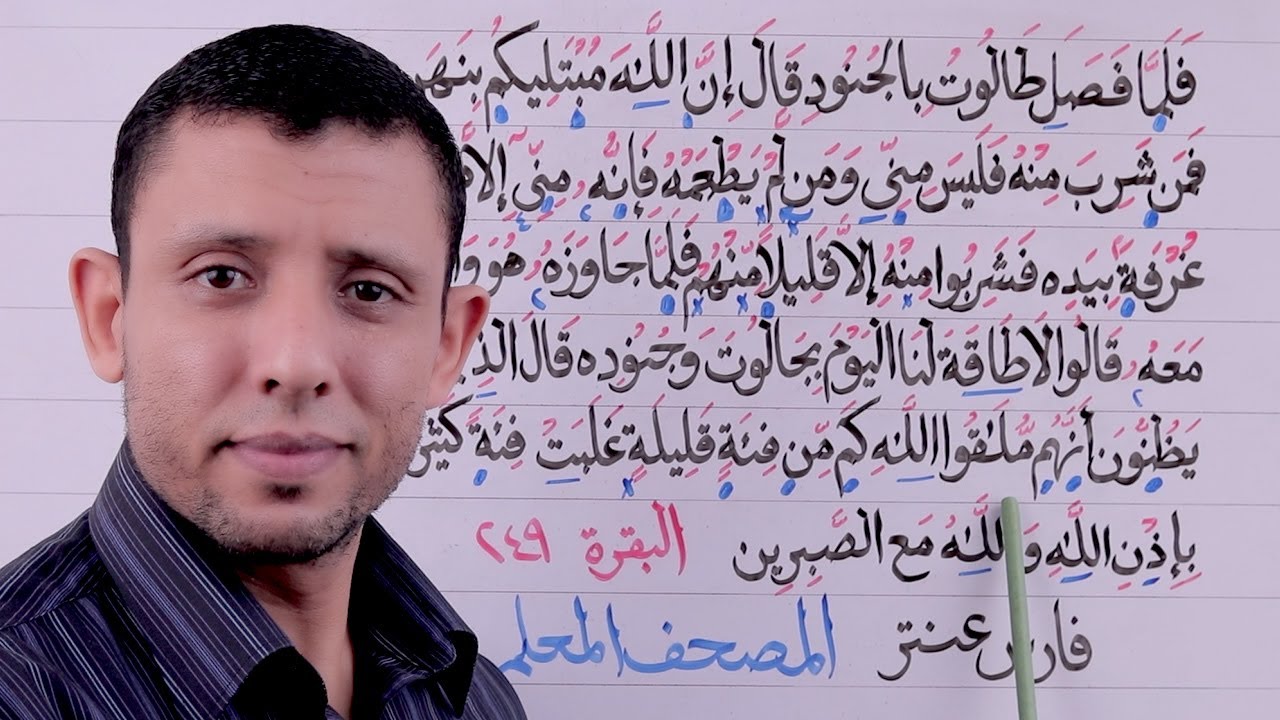 فَلَمَّا فَصَلَ طَالُوتُ بِالْجُنُودِ قَالَ إِنَّ اللَّهَ مُبْتَلِيكُم بِنَهَرٍ
فَمَن شَرِبَ مِنْهُ فَلَيْسَ مِنِّي وَمَن لَّمْ يَطْعَمْهُ فَإِنَّهُۥ مِنِّيٓ
غُرْفَةًۢ بِيَدِهِ فَشَرِبُوا مِنْهُ إِلَّا قَلِيلًا مِّنْهُمْ فَلَمَّا جَاوَزَهُۥ هُوَ
مَعَهُۥ قَالُوا لَا طَاقَةَ لَنَا الْيَوْمَ بِجَالُوتَ وَجُنُودِهِ قَالَ
يَظُنُّونَ أَنَّهُم مُّلَٰقُوا اللَّهِ كَم مِّن فِئَةٍ قَلِيلَةٍ غَلَبَتْ فِئَةً
بِإِذْنِ اللَّهِ وَاللَّهُ مَعَ الصَّٰبِرِين البقرة ٢٤٩
فارس عنتر المصحف المعلم